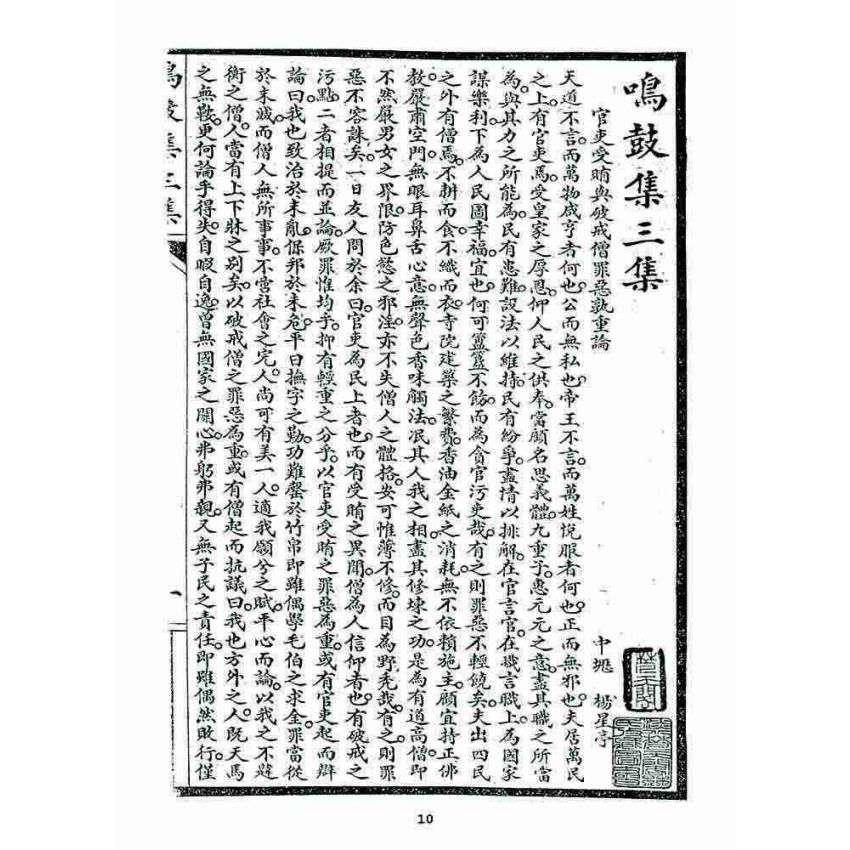 鳴鼓集三集
官吏受賄與破戒僧罪惡孰重論
中壢 楊星亭
天道不言而萬物咸亨者何也公而無私也帝王不言而萬姓悅服者何也正而無邪也夫居萬民
之上有官吏焉受皇家之厚恩仰人民之供奉當顧名思義體九重子惠元元之意盡其職之所當
為與其力之所能為民有患難設法以維持民有紛爭盡情以排解在官言官在職言職上為國家
謀樂利下為人民圖幸福宜也何可簠簋不飭而為貪官污吏哉有之則罪惡不輕饒矣夫出四民
之外有僧焉不耕而食不織而衣寺院建築之繁費香油金紙之消耗無不依賴施主顧宜持正佛
教嚴肅空門無眼耳鼻舌心意無聲色香味觸法泯其人我之相盡其修煉之功是為有道高僧即
不然嚴男女之界限防色慾之邪淫亦不失僧人之體格安可惟薄不修而目為野禿哉有之則罪
惡不容誅矣一日友人問於余曰官吏為民上者也而有受賄之異聞僧為人信仰者也有破戒之
污點二者相提而並論厥罪惟均乎抑有輕重之分乎以官吏受賄之罪惡為重或有官吏起而辯
論曰我也致治於未亂保邦於未危平日撫字之勤功難罄於竹帛即雖偶學毛伯之求金罪當從
於末減而僧人無所事事不啻社會之冗人尚可有美一人適我願兮之賦平心而論以我之不避
衡之僧人當有上下牀之別矣以破戒僧之罪惡為重或有僧起而抗議曰我也方外之人既天馬
之無鞍更何論乎得失自暇自逸曾無國家之關心弗躬弗親又無子民之責任即雖偶然敗行僅
鳴鼓集三集
一
10